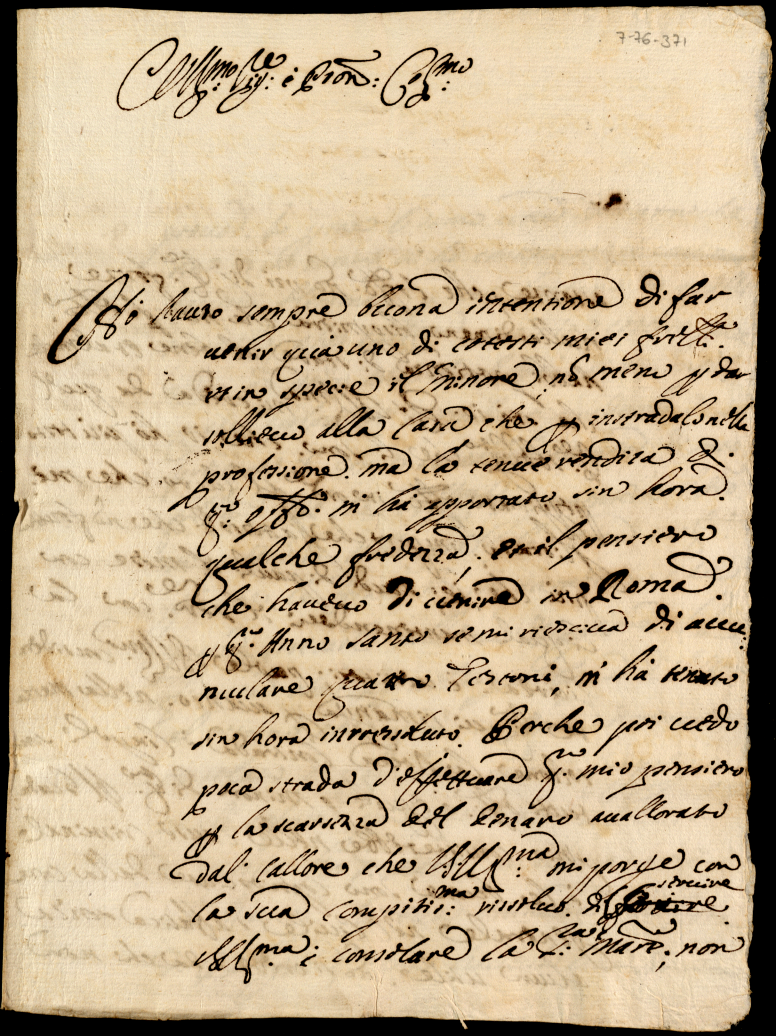 7-76-371
Ill.mo Sig.re e Pron: Col.mo
Hò hauuto sempre buona intentione di far
uenir quà uno di cotesti miei frelli.
et in specie il minore, nõ meno p dar
solleuo alla Casa che p instradalo nella
professione. ma la tenue rendita di
q.o offo. m'ha apportato sin hora
qualche fredezza, et il pensiero
che haueuo di uenire in Roma
p q.o Anno santo se mi riesciua di accu:
mulare quattro Testoni, m'hà tenuto
sin hora inresoluto. Perche poi uedo
poca strada d'effettuare q.o mio pensiero
p la scarsezza del denaro auallorato
dal callore che V.S. Ill.ma mi porge con
la sua compitis:ma rissoluo di seruire
V.S. Ill.ma e consolare la S.ra Madre, non